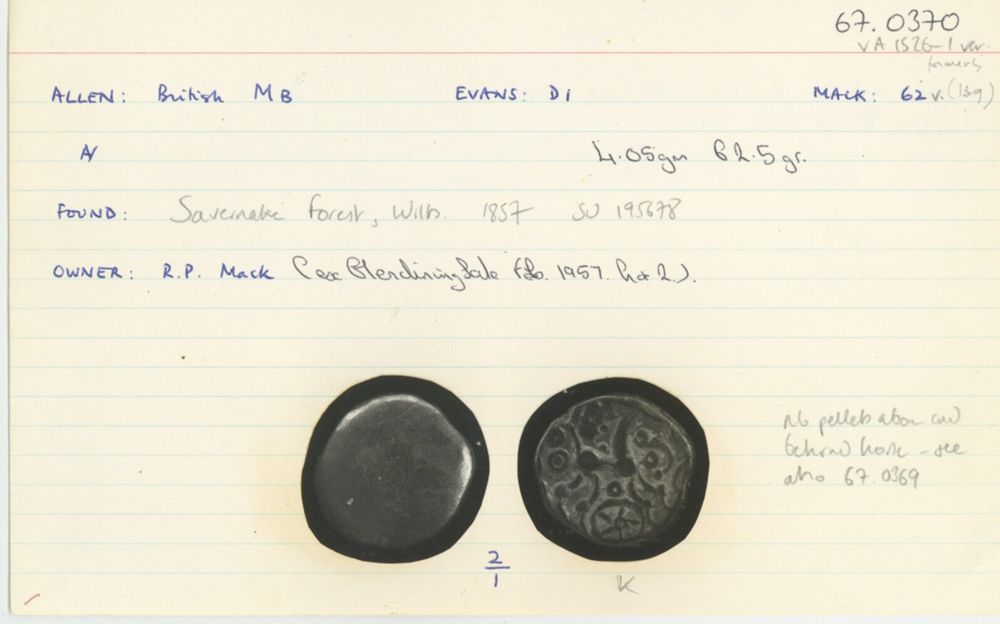 67.0370
VA 1526-1 var.
formerly
ALLEN: British MB EVANS: D1 MACK: 62 v. (139)
AV 4.05gm 62.5 gr.
FOUND: Savernake Forest, Wilts. 1857 SU 195678
OWNER: R.P. Mack (ex Glendining Sale Feb. 1957. lot 2.).
NB pellets above and
behind horse - see
also 67.0369
2
1
K